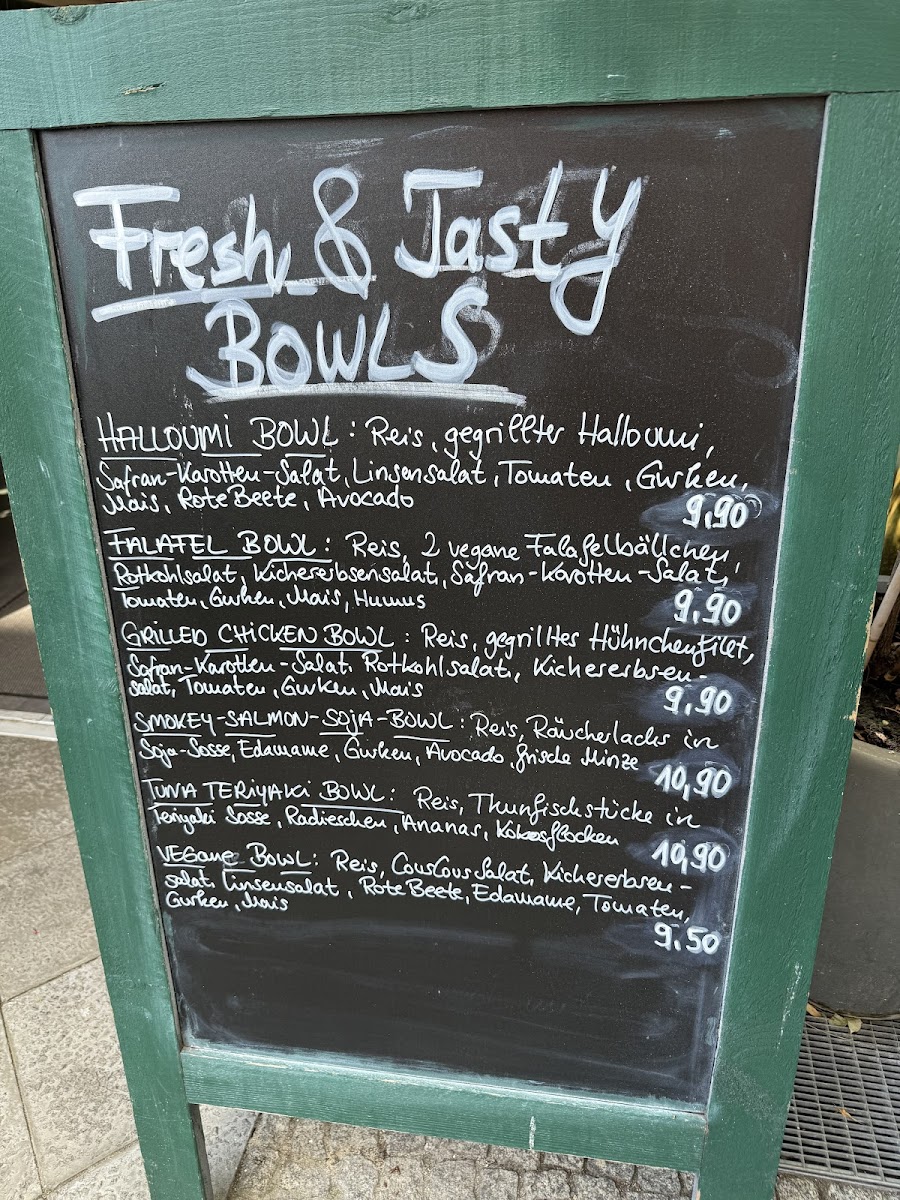 Fresh & Tasty
BOWLS
HALLOUMI BOWL: Reis, gegrillter Halloumi,
Safran-Karotten-Salat, Linsensalat, Tomaten, Gurken,
Mais, Rote Beete, Avocado
9,90
FALAFEL BOWL: Reis, 2 vegane Falafelbällchen,
Rotkohlsalat, Kichererbsensalat, Safran-Karotten-Salat,
Tomaten, Gurken, Mais, Humus
9,90
GRILLED CHICKEN BOWL: Reis, gegrilltes Hühnchenfilet,
Safran-Karotten-Salat, Rotkohlsalat, Kichererbsen-
salat, Tomaten, Gurken, Mais
9,90
SMOKEY-SALMON-SOJA-BOWL: Reis, Räucherlachs in
Soja-Sosse, Edamame, Gurken, Avocado, frische Minze
10,90
TUNA TERIYAKI BOWL: Reis, Thunfischstücke in
Teriyaki Sosse, Radieschen, Ananas, Kokosflocken
10,90
VEGane BOWL: Reis, CousCousSalat, Kichererbsen-
salat, Linsensalat, Rote Beete, Edamame, Tomaten,
Gurken, Mais
9,50